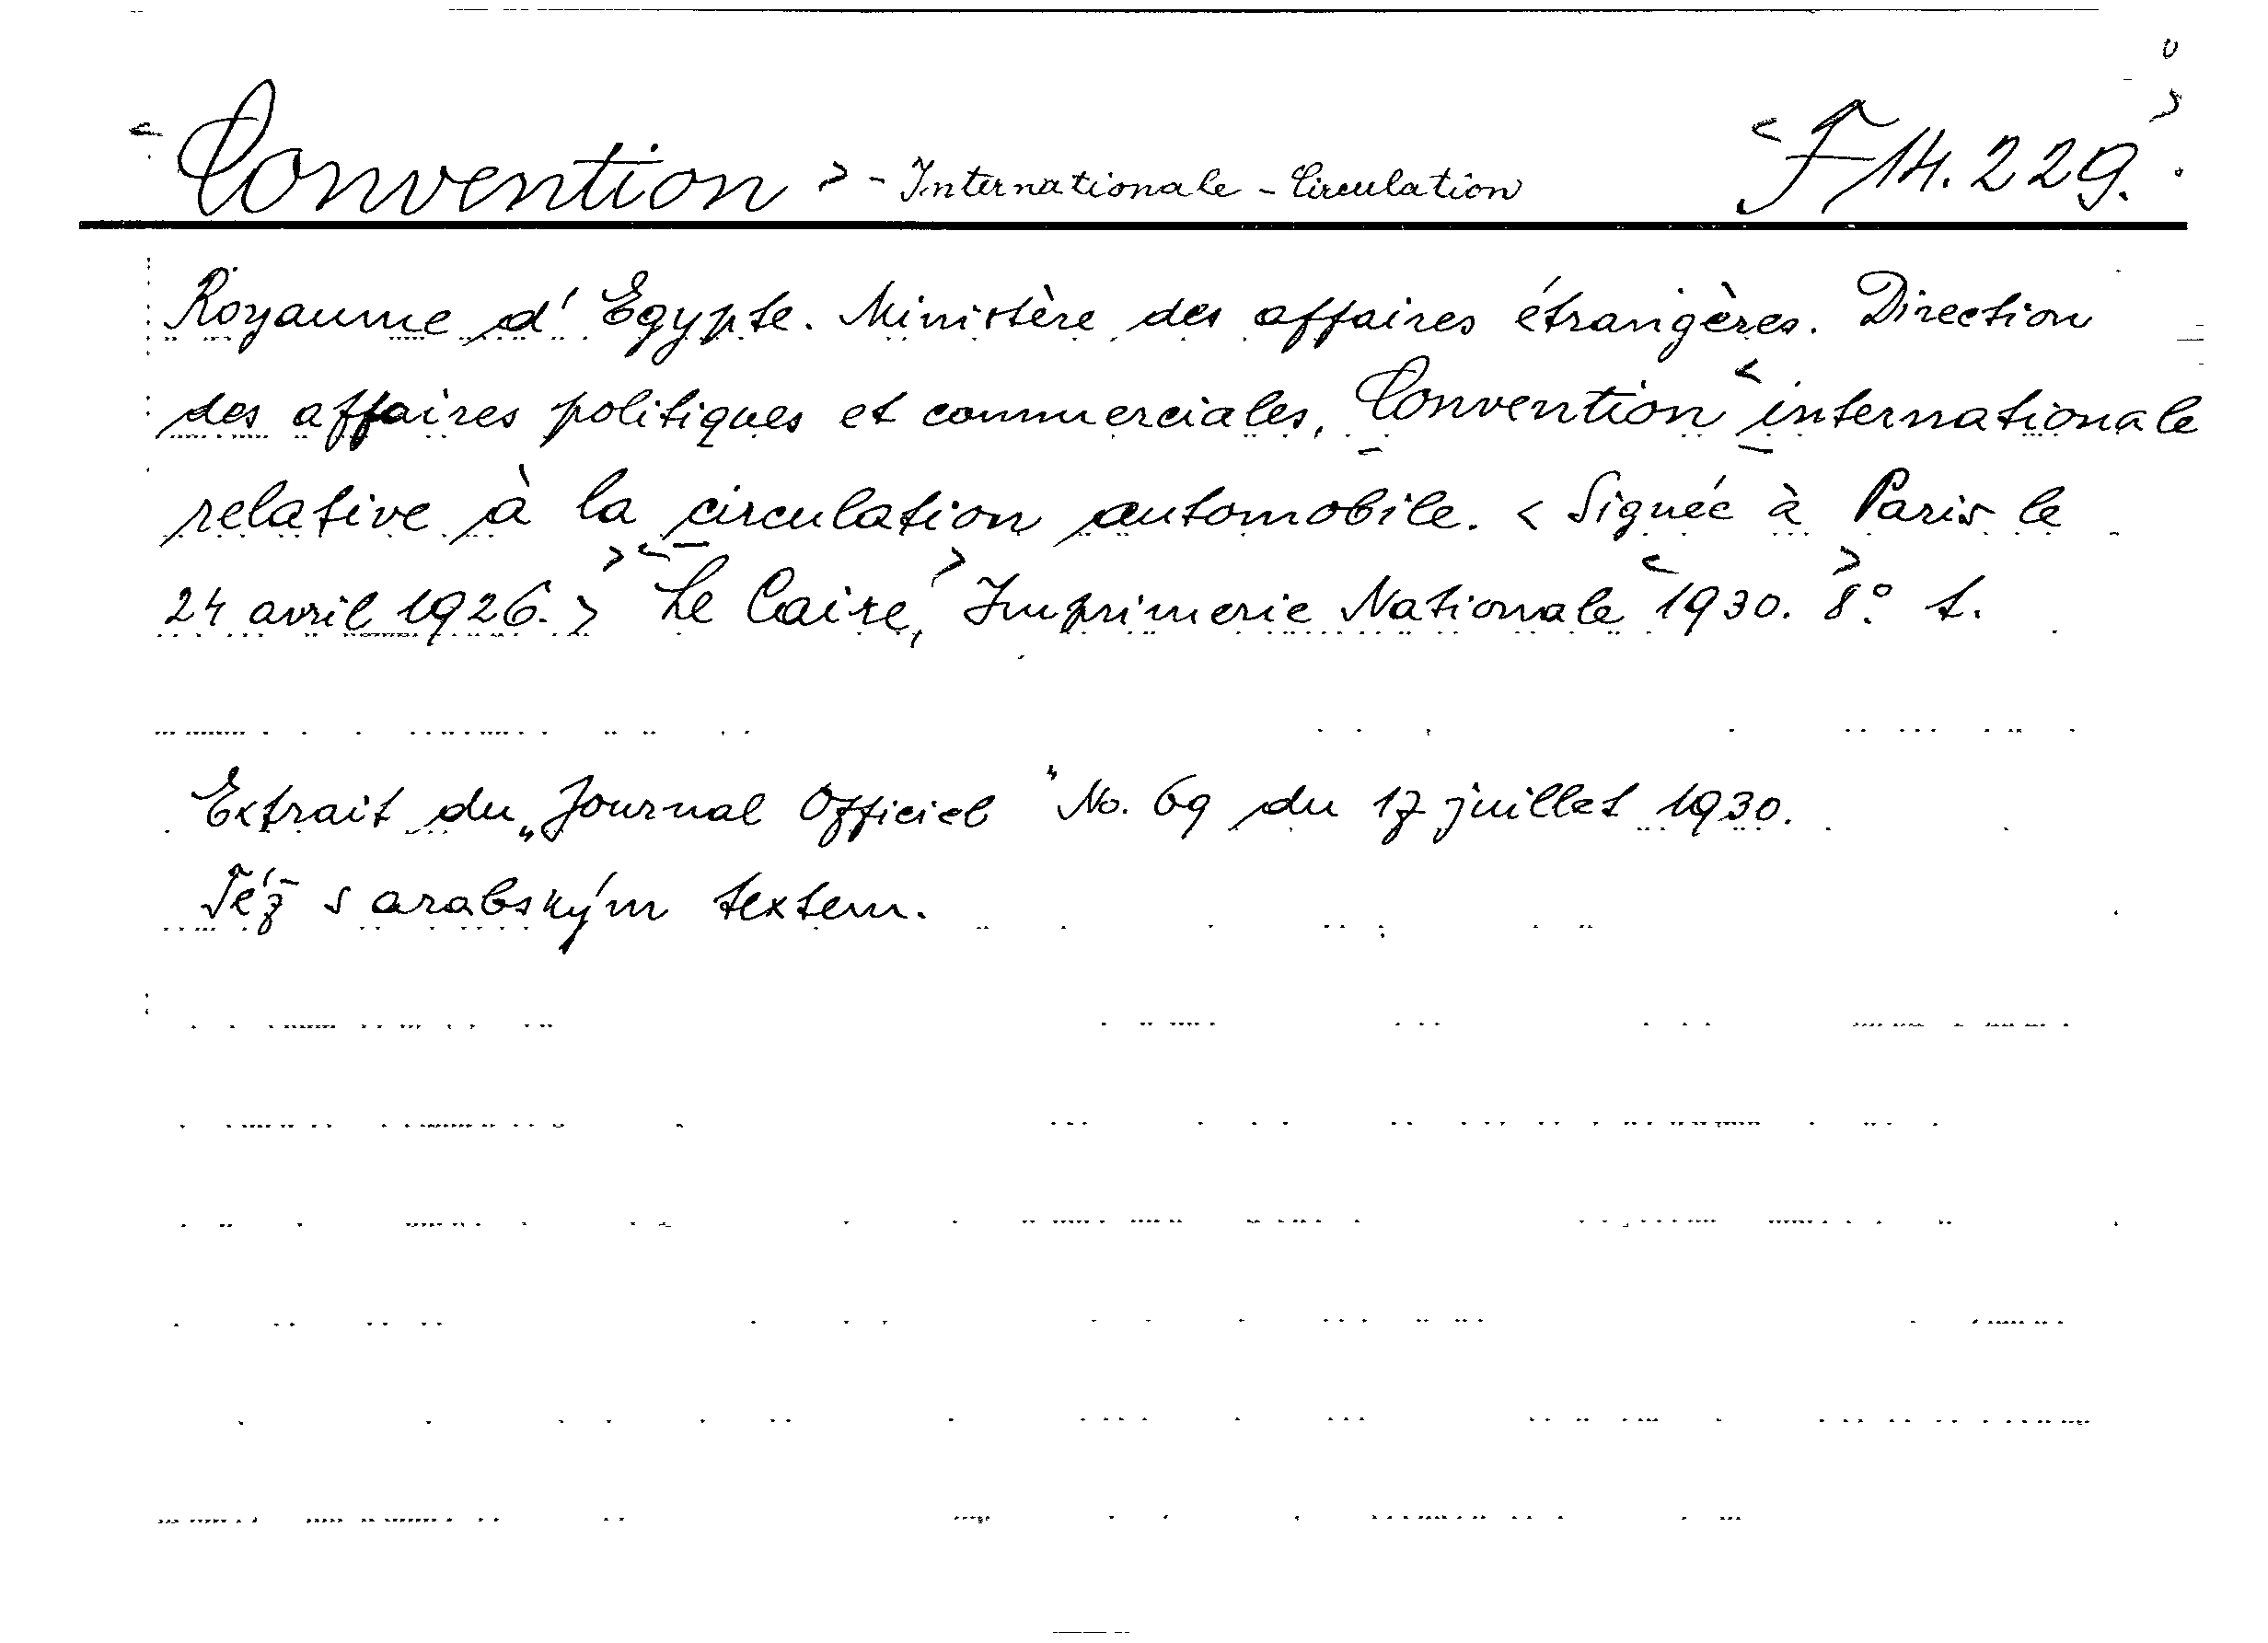 < Convention > - Internationale - Circulation < F 14.229. >
Royaume d'Egypte. Ministère des affaires étrangères. Direction
des affaires politiques et commerciales, Convention < internationale
relative à la circulation automobile. < Signée à Paris le
24 avril 1926. > > < Le Caire, > Imprimerie Nationale < 1930. > 8° t.
Extrait du „Journal Officiel" No. 69 du 17 juillet 1930.
Též s arabským textem.